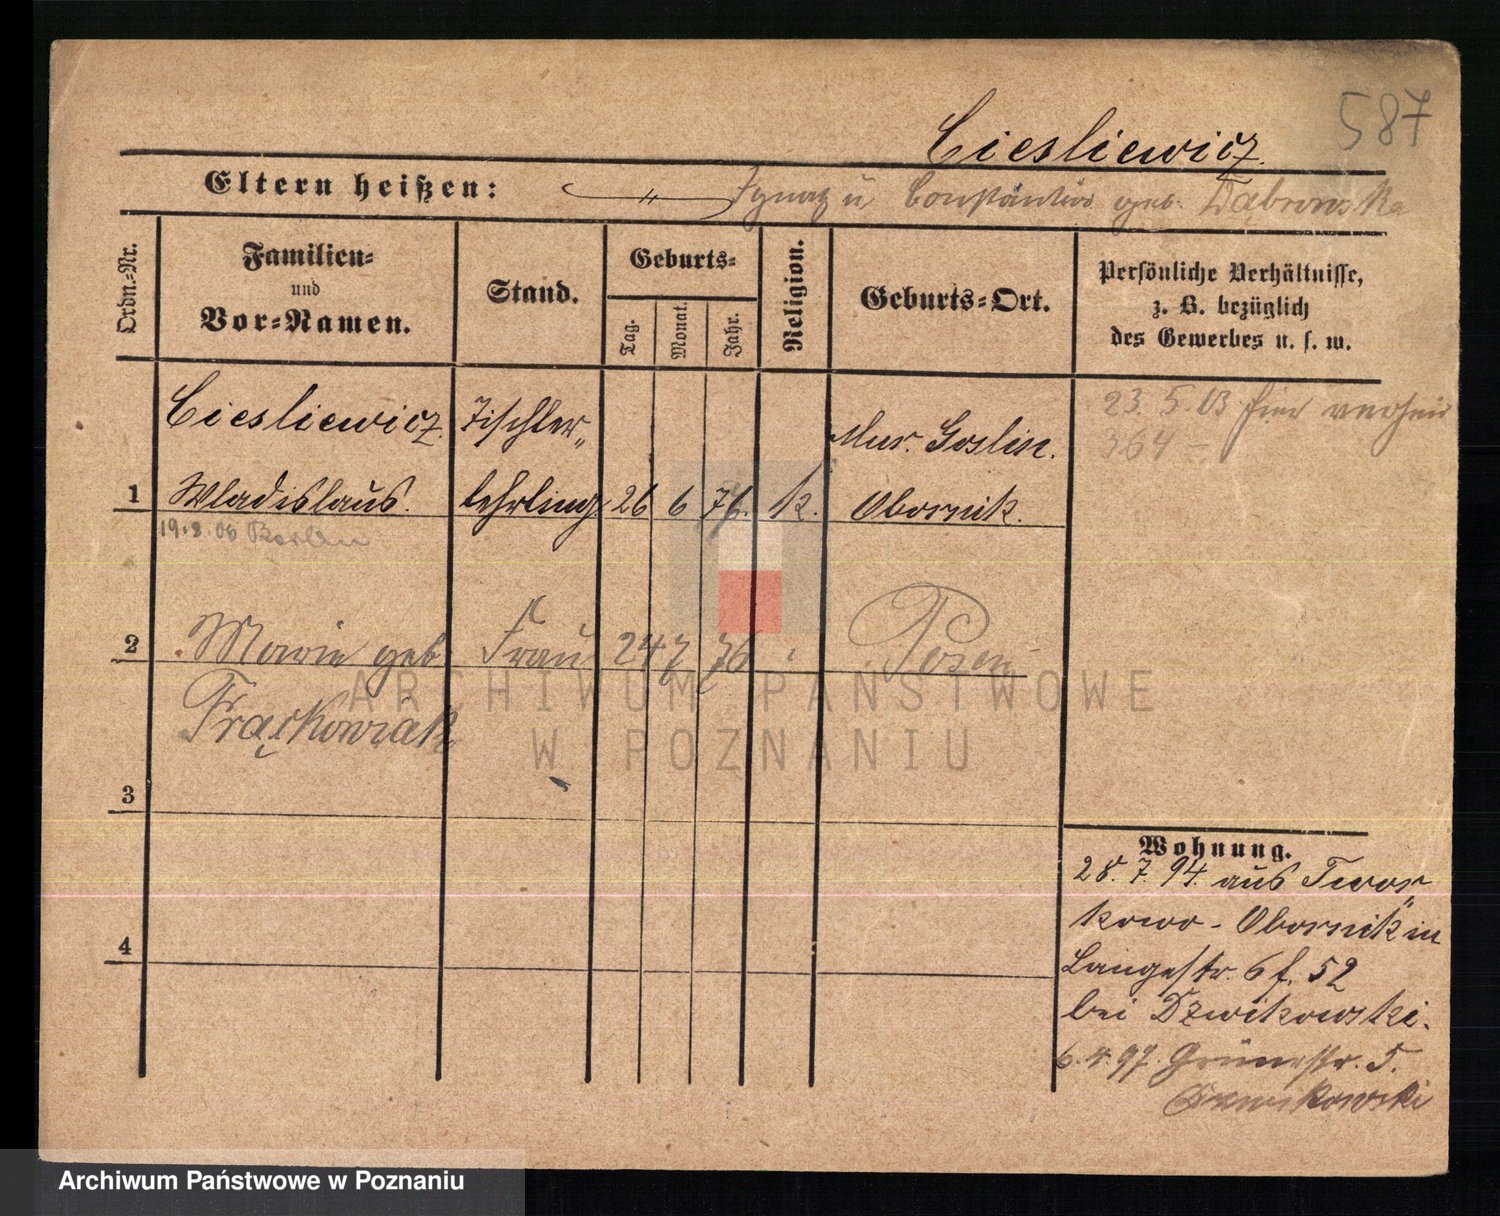 587
Ciesliewicz.
Eltern heißen: Ignatz u. Constantia geb. Dąbrowska
Ordn.=Nr.
Familien=
und
Vor=Namen.
Stand.
Geburts=
Tag.
Monat.
Jahr.
Religion.
Geburts=Ort.
Persönliche Verhältnisse,
z. B. bezüglich
des Gewerbes u. s. w.
Ciesliewicz Tischler„ Mur. Goslin.
1 Wladislaus. lehrling 26 6 76. K. Obornik.
23. 5 03 hier verheir
364 -
19.8.06 Berlin
2 Marie geb Frau 24 7 76 Posen
Frąckowiak
3
4
Wohnung.
28. 7. 94. aus Twor„
kowo - Obornik in
Langestr. 6 f. 52
bei Dzwikowski.
6. 4. 97. Grünestr. 5.
Dzwikowski
ARCHIWUM PAŃSTWOWE
W POZNANIU
Archiwum Państwowe w Poznaniu